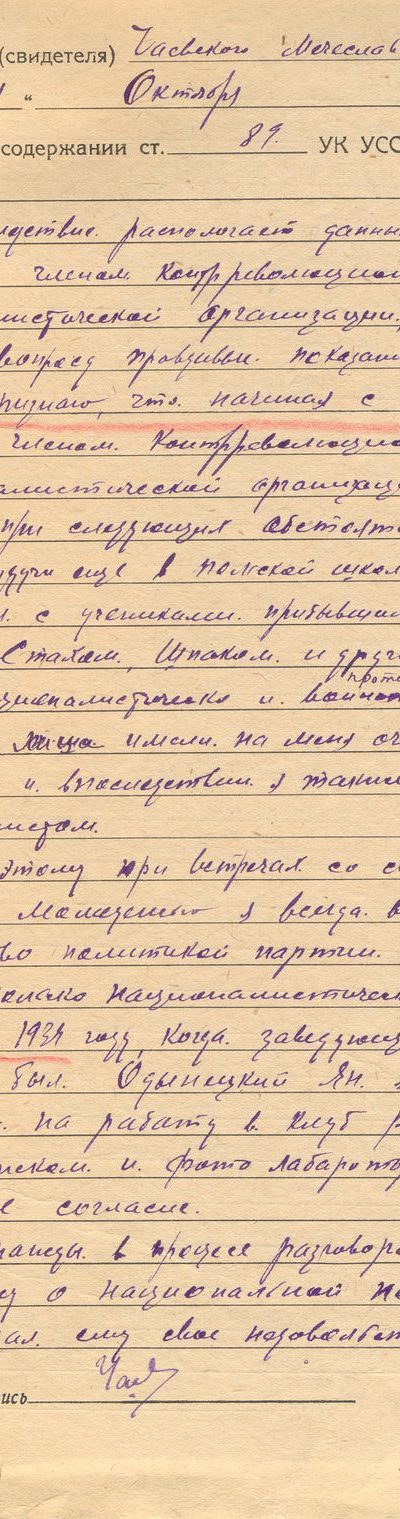 (свидетеля) Чаевского Мечеслав
" Октября
содержании ст. 89. УК УСС
едствие. распологает данны
членом Контрреволюцион
листической организации.
вопросу правдивы. показани
ризнаю, что. начиная с
членом. Контрреволюцио
алистической организаци
при следующих обстоят
удучи еще в полской школ
с учениками. прибывши
Стахом, Шпаком. и други
проти
ционалистическо и.
лица имели. на меня оч
и. впоследствии. я таким
листом.
этому при встречах. со с
Молодежью я всегда. в
во политикой партии.
олько националистическ
1934 году, когда. заведующ
был. Одынецкий Ян.
на работу в. клуб
и. фото лаборатор
е согласие.
в процесе разговор
о национальной по
ал. ему свое недовольст
ись Чай